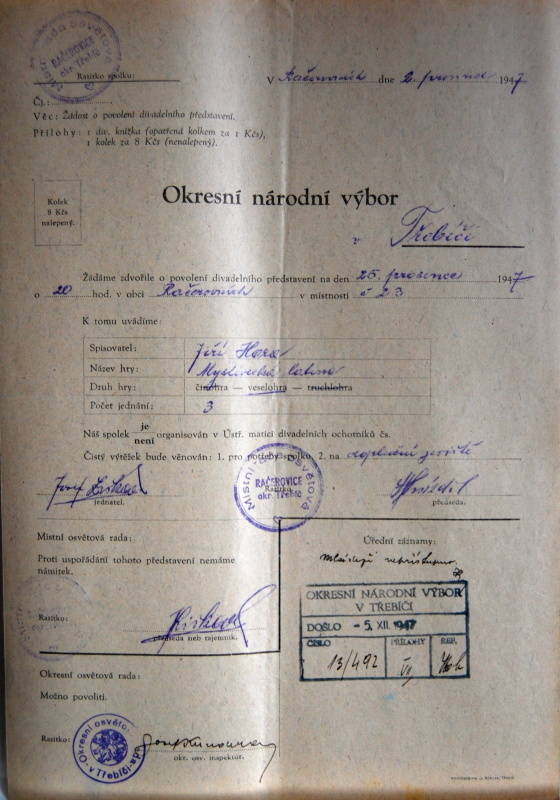 Místní rada osvětová
RAČEROVICE
okr. Třebíč
Razítko spolku:
V Račerovicích dne 2. prosince 1947
Čj.:
Věc: Žádost o povolení divadelního představení.
Přílohy: 1 div. knížka (opatřená kolkem za 1 Kčs),
1 kolek za 8 Kčs (nenalepený).
Kolek
8 Kčs
nalepený.
Okresní národní výbor
v Třebíči
Žádáme zdvořile o povolení divadelního představení na den 25. prosince 1947
o 20 hod. v obci Račerovicích v místnosti č 23
K tomu uvádíme:
Spisovatel: Jiří Hora
Název hry: Myslivecká
Druh hry: činohra — veselohra — truchlohra
Počet jednání: 3
Náš spolek je
není organisován v Ústř. matici divadelních ochotníků čs.
Čistý výtěžek bude věnován: 1. pro potřeby spolku, 2. na doplnění jeviště
Místní rada osvětová
RAČEROVICE
okr. Třebíč
Razítko
Josef
jednatel.
předseda.
Místní osvětová rada:
Proti uspořádání tohoto představení nemáme
námitek.
Razítko:
předseda neb tajemník.
Úřední záznamy:
Mládeži nepřístupno.
OKRESNÍ NÁRODNÍ VÝBOR
V TŘEBÍČI
DOŠLO -5. XII. 1947
ČÍSLO PŘÍLOHY REF.
13/492
Okresní osvětová rada:
Možno povoliti.
Razítko:
okr. osv. inspektor.